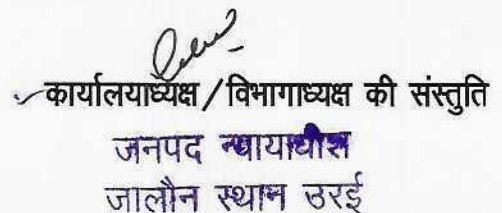 कार्यालयाध्यक्ष / विभागाध्यक्ष की संस्तुति
जनपद न्यायाधीश
जालौन स्थान उरई